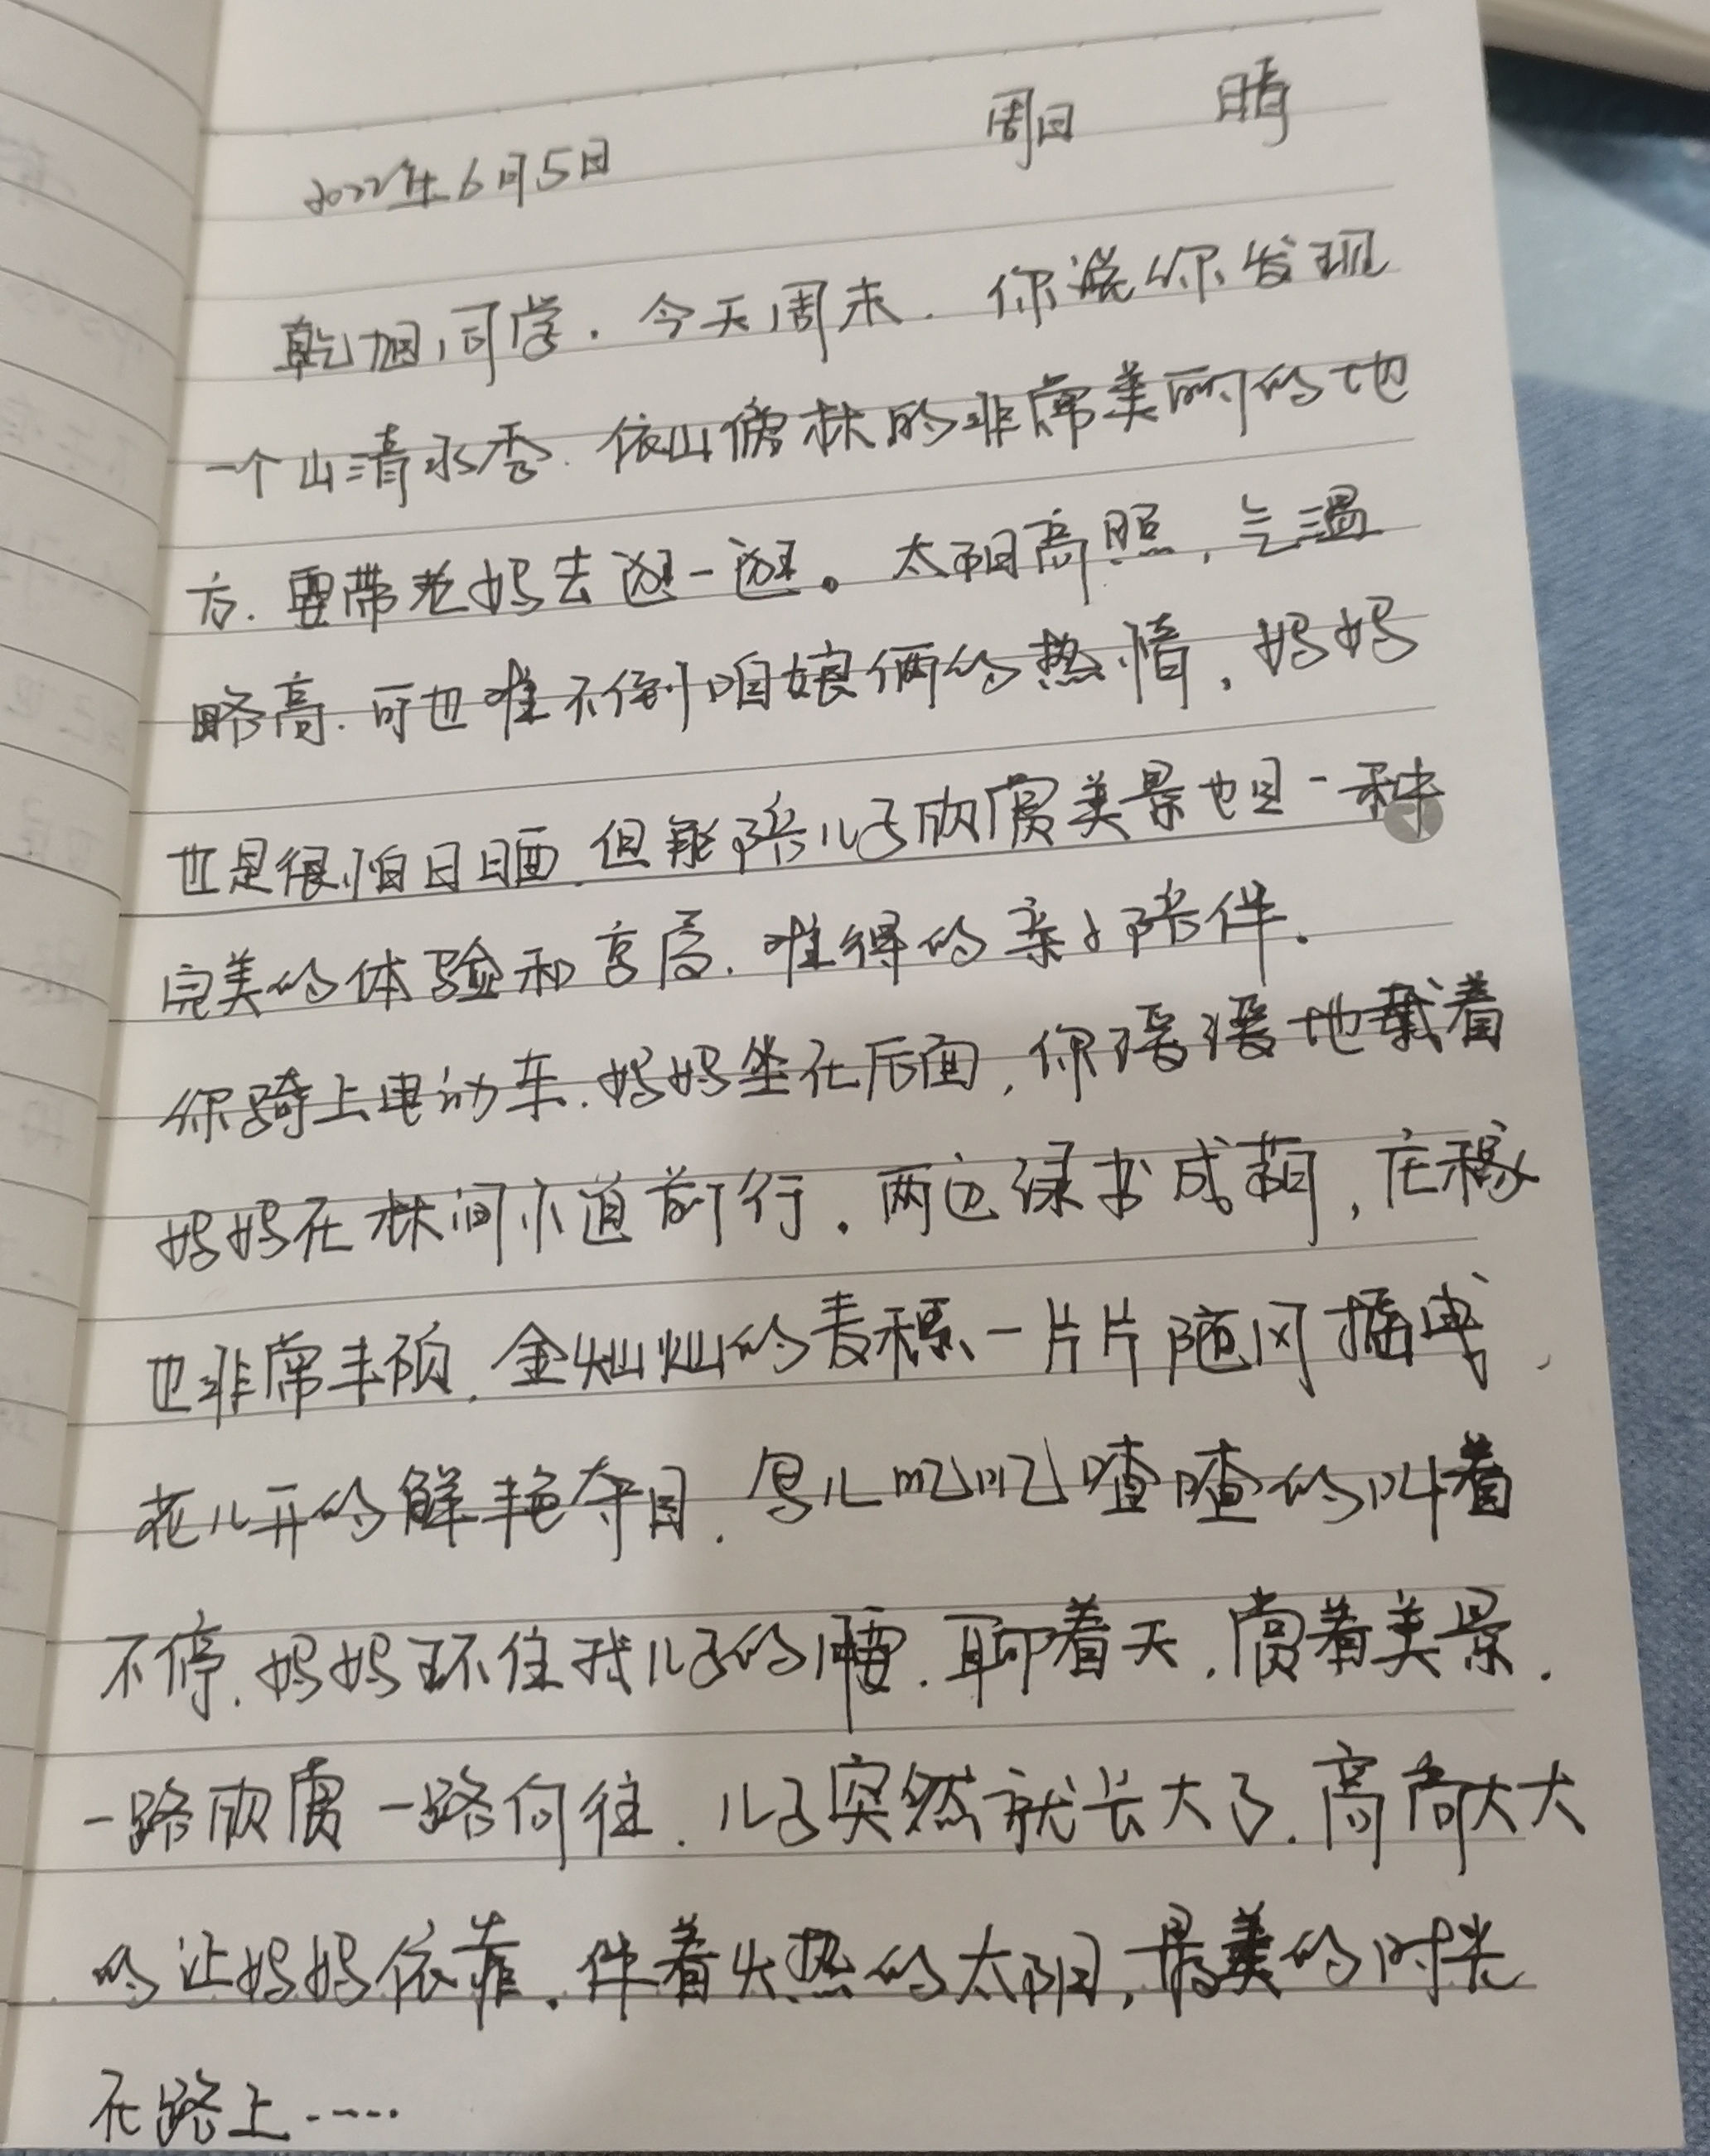 2022年6月5日 周日 晴
乾旭同学.今天周末.你说你发现
一个山清水秀.依山傍林的非常美丽的地
方.要带老妈去逛一逛。太阳高照,气温
略高.可也难不倒咱娘俩的热情,妈妈
也是很怕日晒.但能陪儿子欣赏美景也是一种
完美的体验和享受.难得的亲子陪伴.
你骑上电动车.妈妈坐在后面,你缓缓地载着
妈妈在林间小道前行.两边绿书成荫,庄稼
也非常丰硕.金灿灿的麦穗一片片随风摇曳,
花儿开的鲜艳夺目.鸟儿叽叽喳喳的叫着
不停.妈妈环住我儿子的腰.聊着天.赏着美景.
一路欣赏一路向往.儿子突然就长大了.高高大大
的让妈妈依靠.伴着火热的太阳,最美的时光
在路上.....